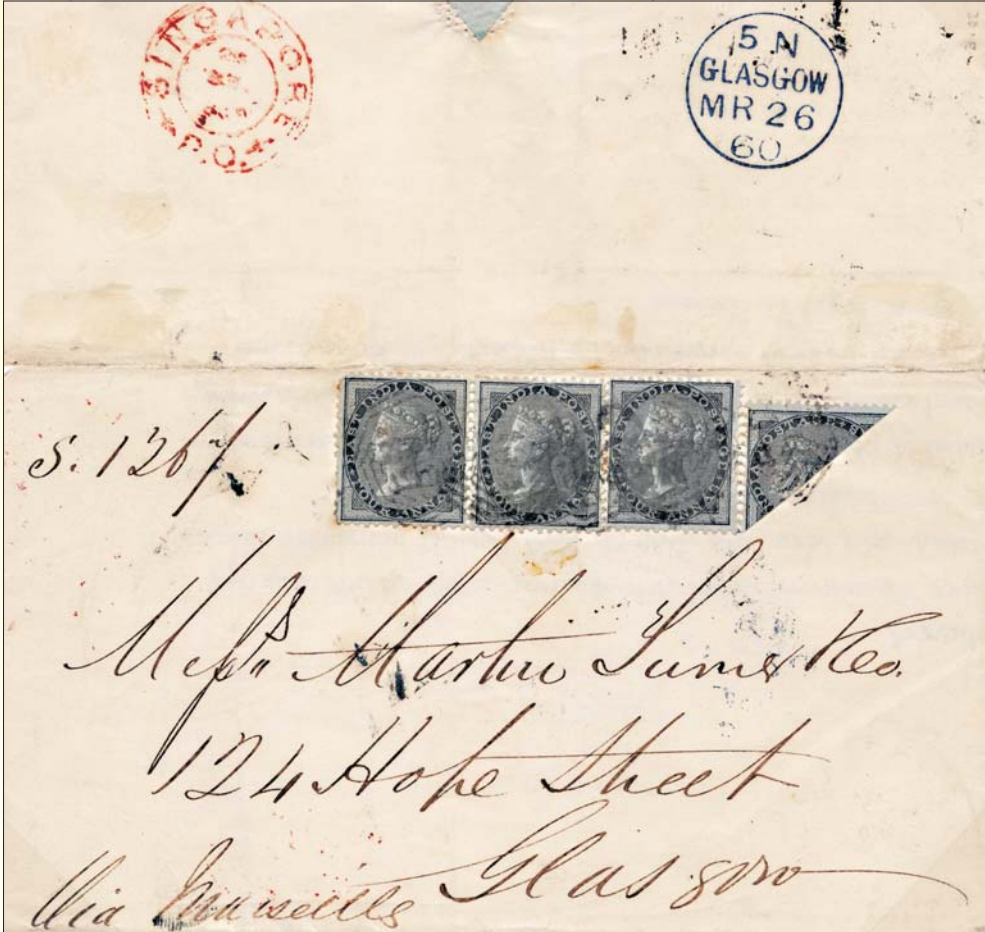 SINGAPORE P.O.
5 N
GLASGOW
MR 26
60
EAST INDIA POSTAGE FOUR ANNAS
EAST INDIA POSTAGE FOUR ANNAS
EAST INDIA POSTAGE FOUR ANNAS
S. 126
Messrs Martin Turner & Co.
124 Hope Street
Glasgow
Via Marseilles